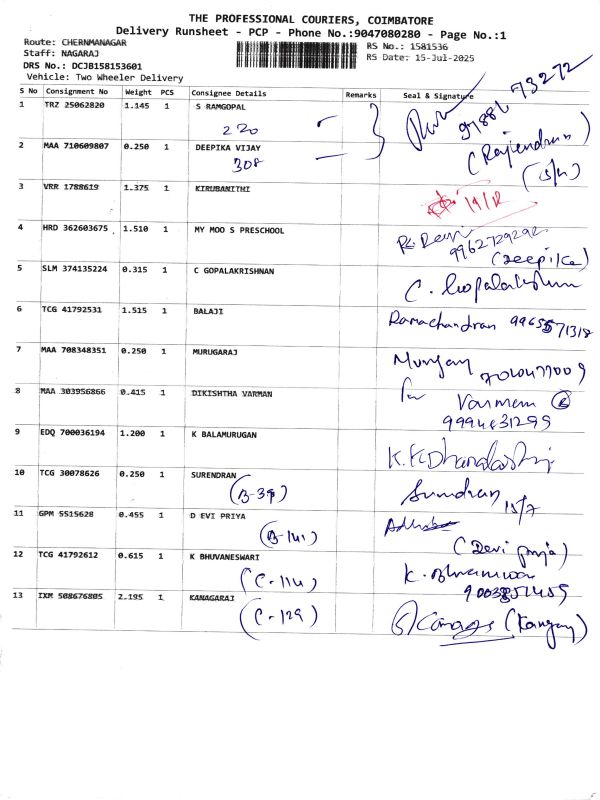 THE PROFESSIONAL COURIERS, COIMBATORE
Delivery Runsheet - PCP - Phone No.:9047080280 - Page No.:1
Route: CHERNMANAGAR
RS No.: 1581536
Staff: NAGARAJ
RS Date: 15-Jul-2025
DRS No.: DCJB158153601
Vehicle: Two Wheeler Delivery
S No Consignment No Weight PCS Consignee Details Remarks Seal & Signature
1 TRZ 25062820 1.145 1 S RAMGOPAL
220
97886 73272
2 MAA 710609807 0.250 1 DEEPIKA VIJAY
308
(Rajendran)
(15/7)
3 VRR 1788619 1.375 1 KIRUBANITHI
4 HRD 362603675 1.510 1 MY MOO S PRESCHOOL
9962729292
(Deepika)
5 SLM 374135224 0.315 1 C GOPALAKRISHNAN
C. Gopalakrishnan
6 TCG 41792531 1.515 1 BALAJI
Ramachandran
7 MAA 708348351 0.250 1 MURUGARAJ
8 MAA 303956866 0.415 1 DIKISHTHA VARMAN
for
9994631299
9 EDQ 700036194 1.200 1 K BALAMURUGAN
10 TCG 30078626 0.250 1 SURENDRAN
(B-39)
15/7
11 GPM 5515628 0.455 1 D EVI PRIYA
(B-141)
(Devi priya)
12 TCG 41792612 0.615 1 K BHUVANESWARI
(C-114)
13 IXM 508676805 2.195 1 KANAGARAJ
(C-129)